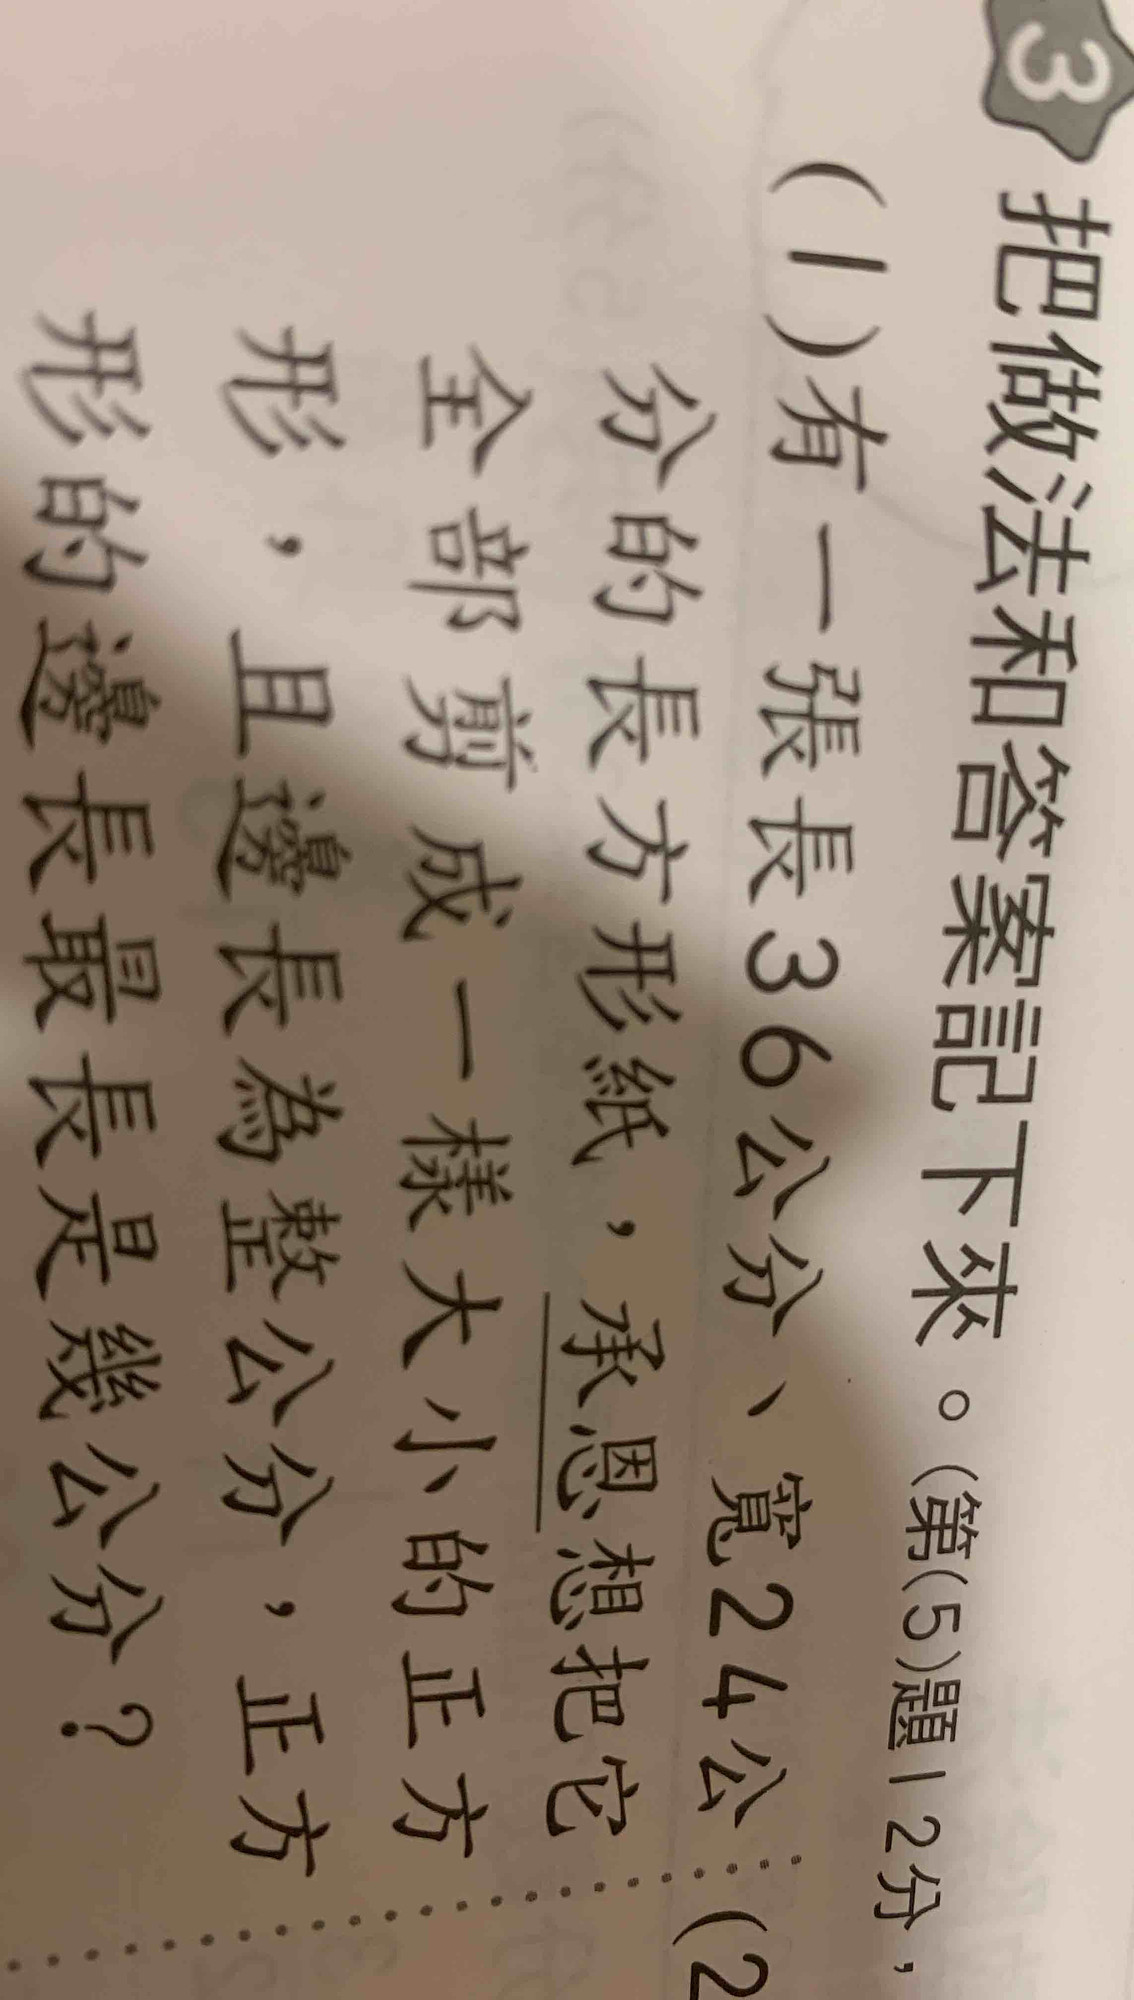 3 把做法和答案記下來。(第(5)題12分，
(1)有一張長36公分、寬24公
分的長方形紙，承恩想把它
全部剪成一樣大小的正方
形，且邊長為整公分，正方
形的邊長最長是幾公分？
(2